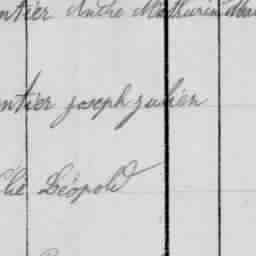 ntier André Mathurin Mar
ntier joseph julien
lié Léopold